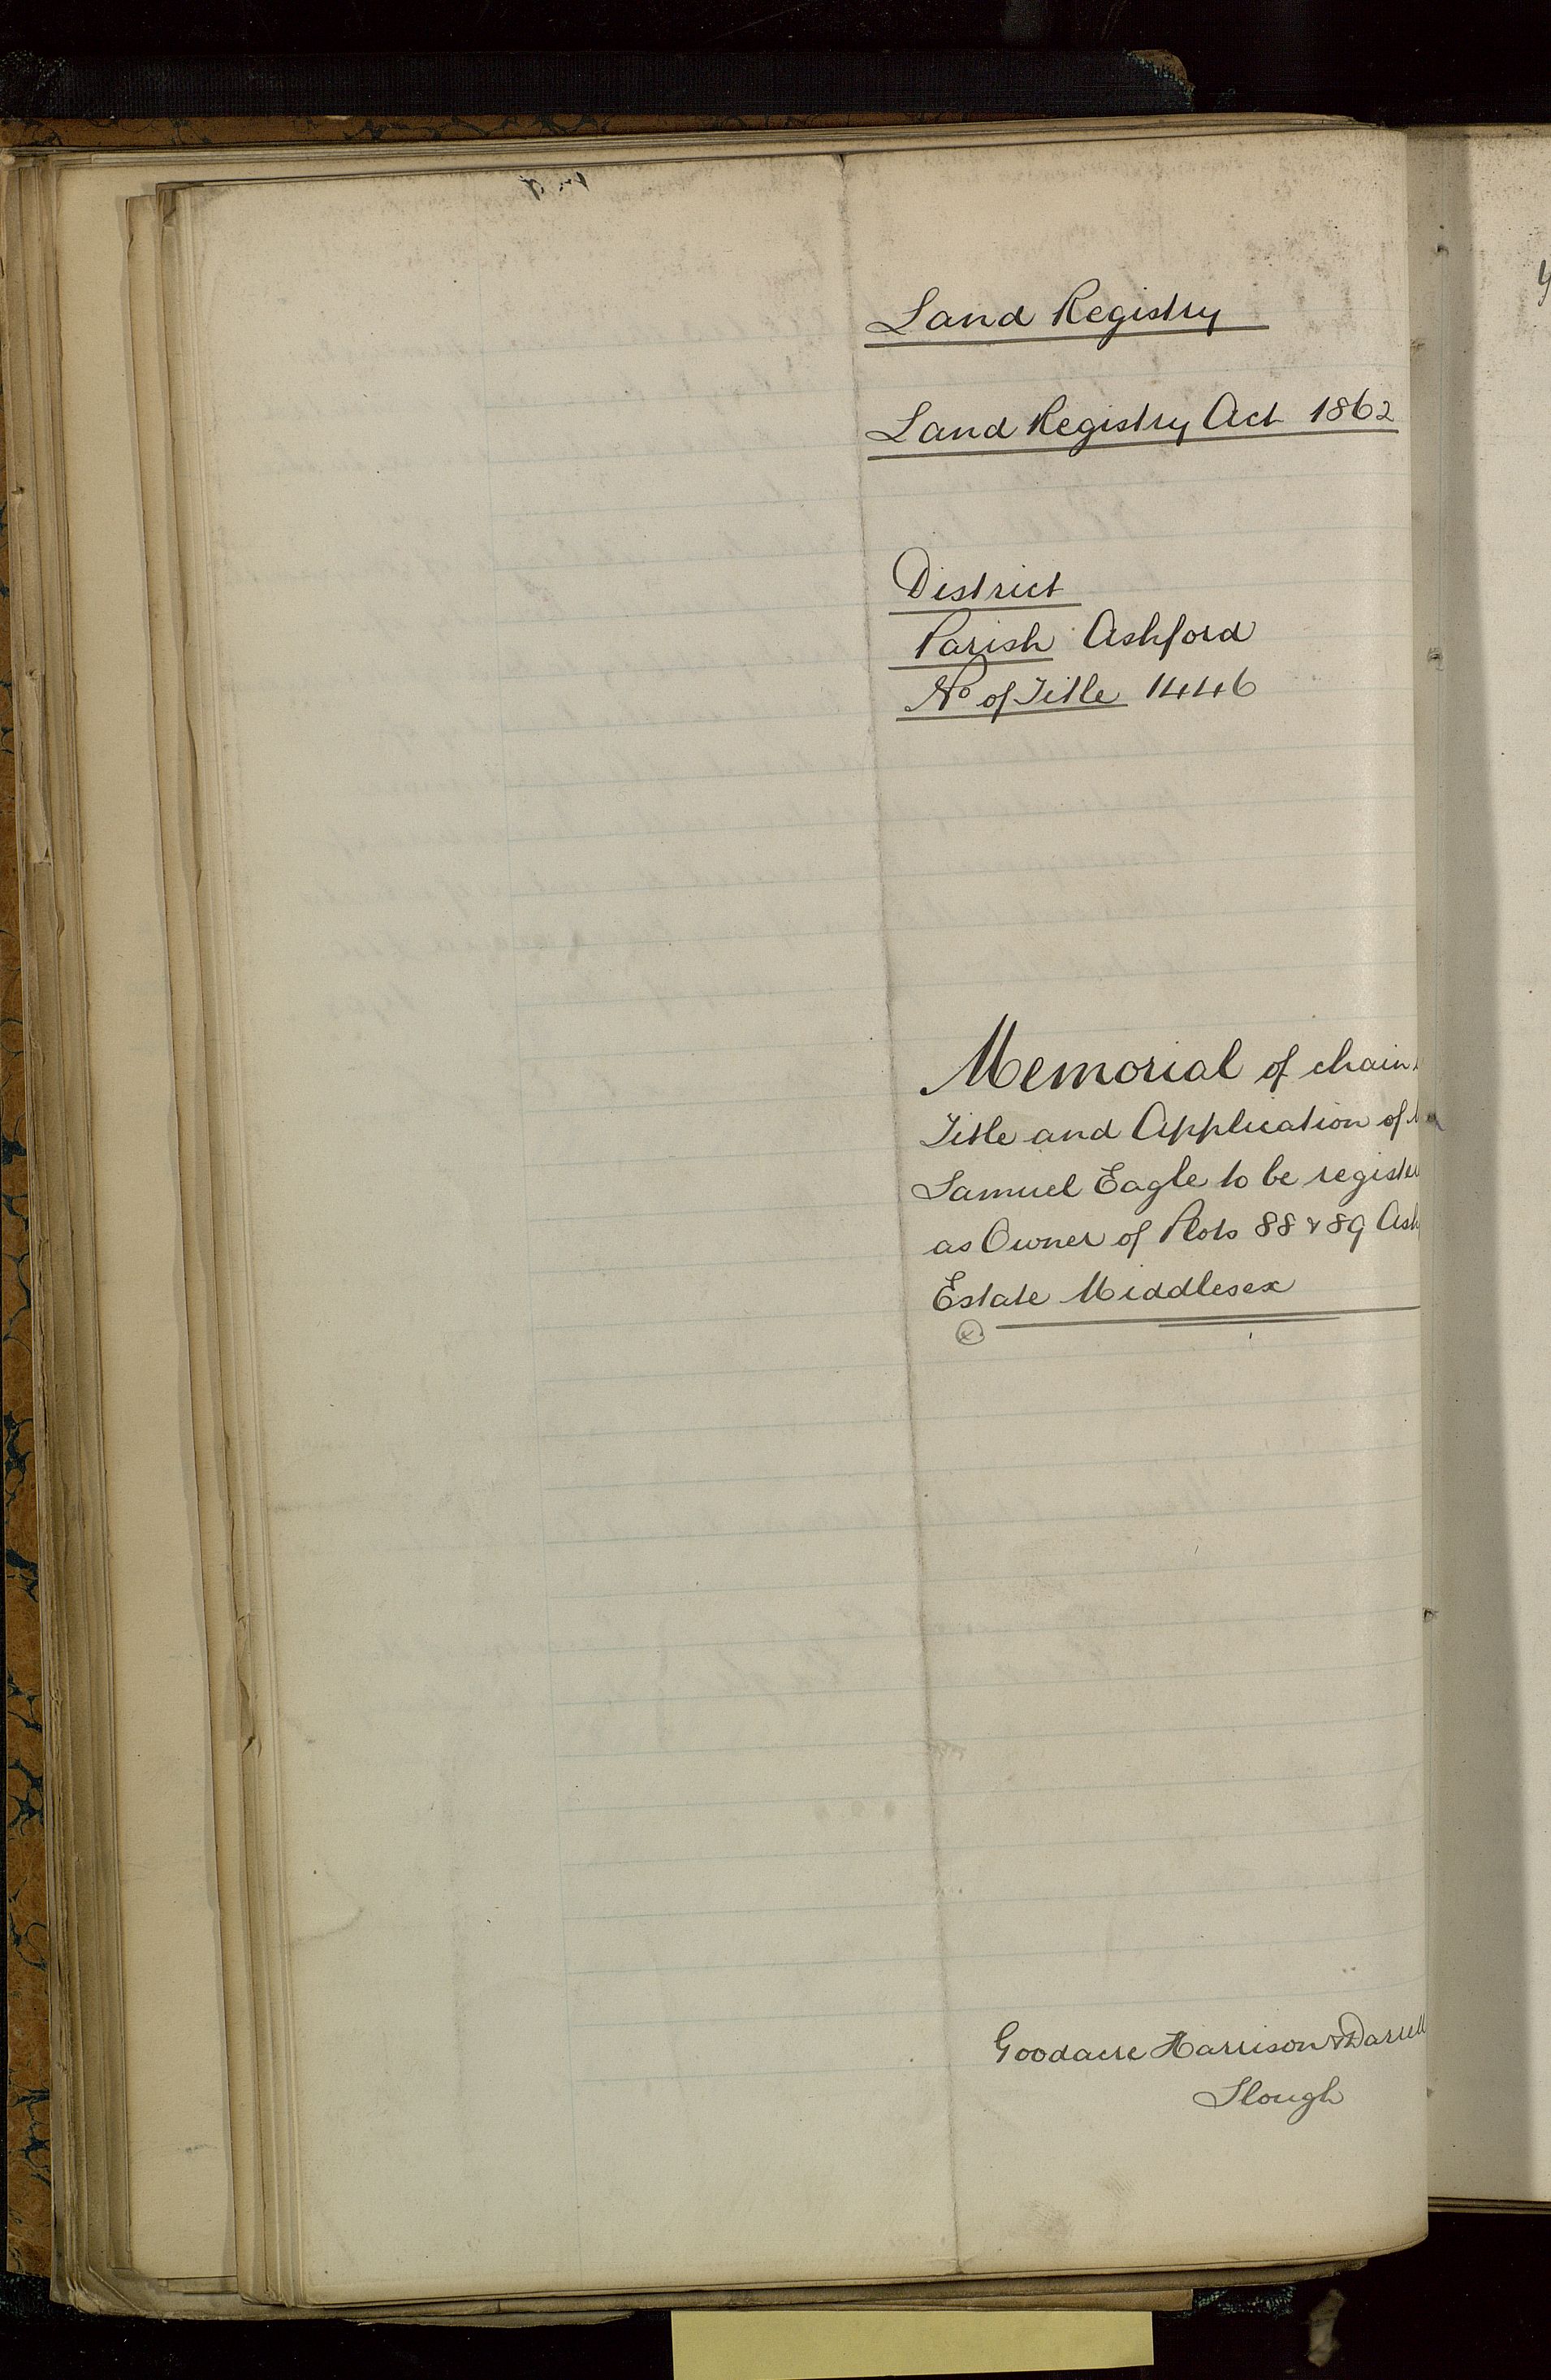 Land Registry
Land Registry Act 1862
District
Parish Ashford
No of Title 1446
Memorial of chain
Title and Application of
Samuel Eagle to be register
as Owner of Plots 88 & 89 Ash
Estate Middlesex
Goodacre Harrison & Darrell
Slough